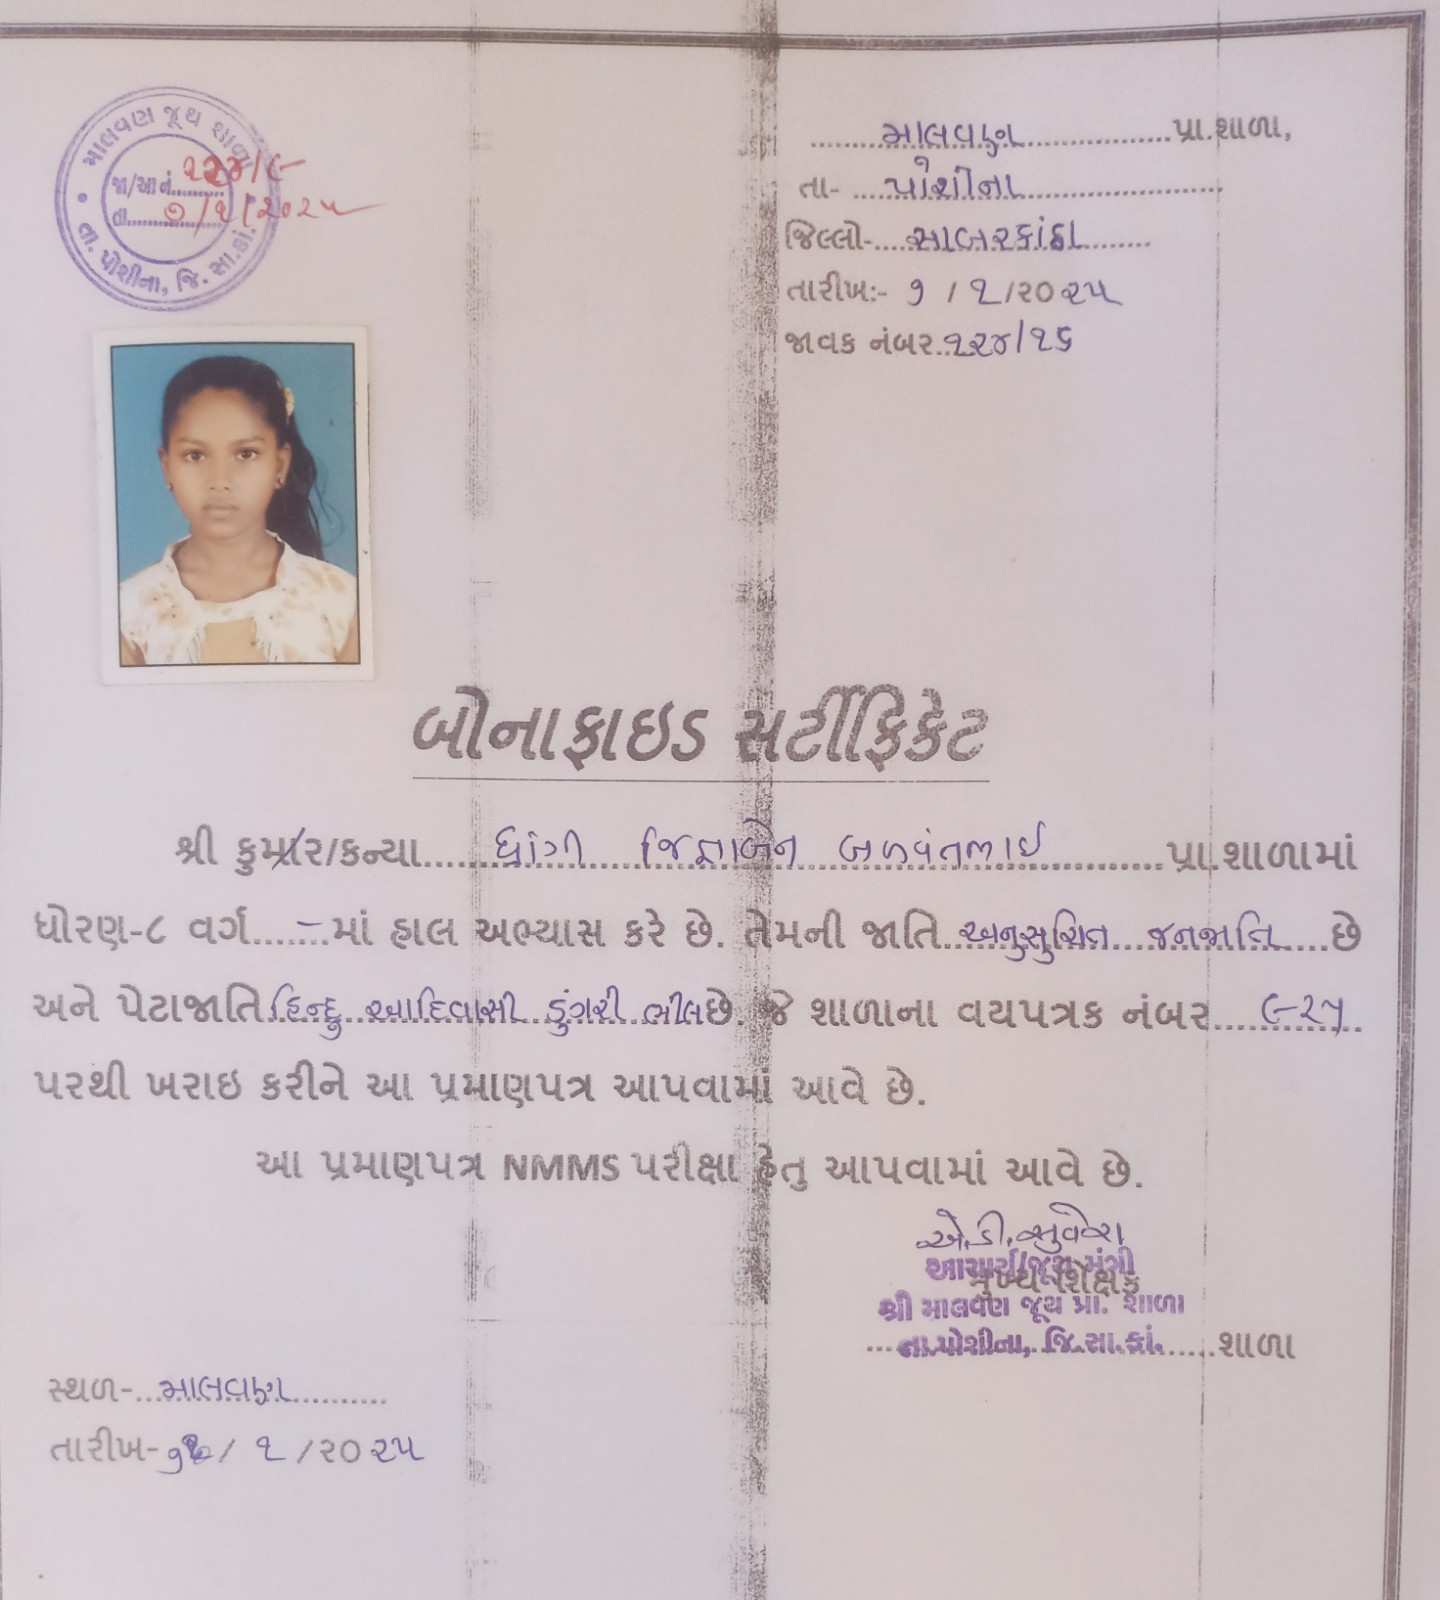 માલવણ જૂથ શાળા
જા/આ નં.
તા. 7/1/2025
તા. પોશીના, જિ. સા.કાં.
માલવણ પ્રા.શાળા,
તા- પોશીના
જિલ્લો- સાબરકાંઠા
તારીખ:- ૭ / ૧ /૨૦ ૨૫
જાવક નંબર ૧૨૪/૧૬
બોનાફાઇડ સર્ટીફિકેટ
શ્રી કુમાર/કન્યા ધ્રાંગી બળવંતભાઈ પ્રા.શાળામાં
ધોરણ-૮ વર્ગ - માં હાલ અભ્યાસ કરે છે. તેમની જાતિ અનુસુચિત જનજાતિ છે
અને પેટાજાતિ હિન્દુ આદિવાસી ડુંગરી ભીલ છે. જે શાળાના વયપત્રક નંબર ૯૨૫
પરથી ખરાઇ કરીને આ પ્રમાણપત્ર આપવામાં આવે છે.
આ પ્રમાણપત્ર NMMS પરીક્ષા હેતુ આપવામાં આવે છે.
એ.ડી.સુવેરા
આચાર્ય/જૂથ મંત્રી
મુખ્ય શિક્ષક
શ્રી માલવણ જૂથ પ્રા. શાળા
તા.પોશીના, જિ.સા.કાં. શાળા
સ્થળ- માલવણ
તારીખ- / ૧ /૨૦ ૨૫